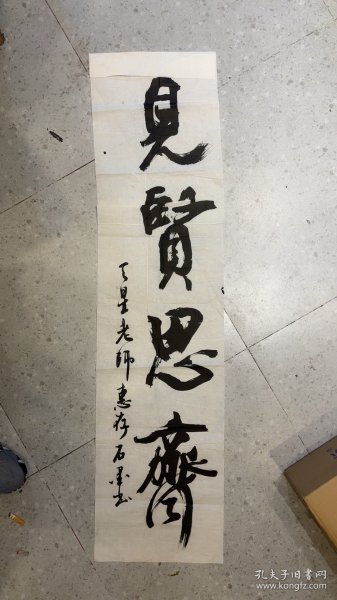 見賢思齊
星老師惠存石墨书
孔夫子旧书网
www.kongfz.com